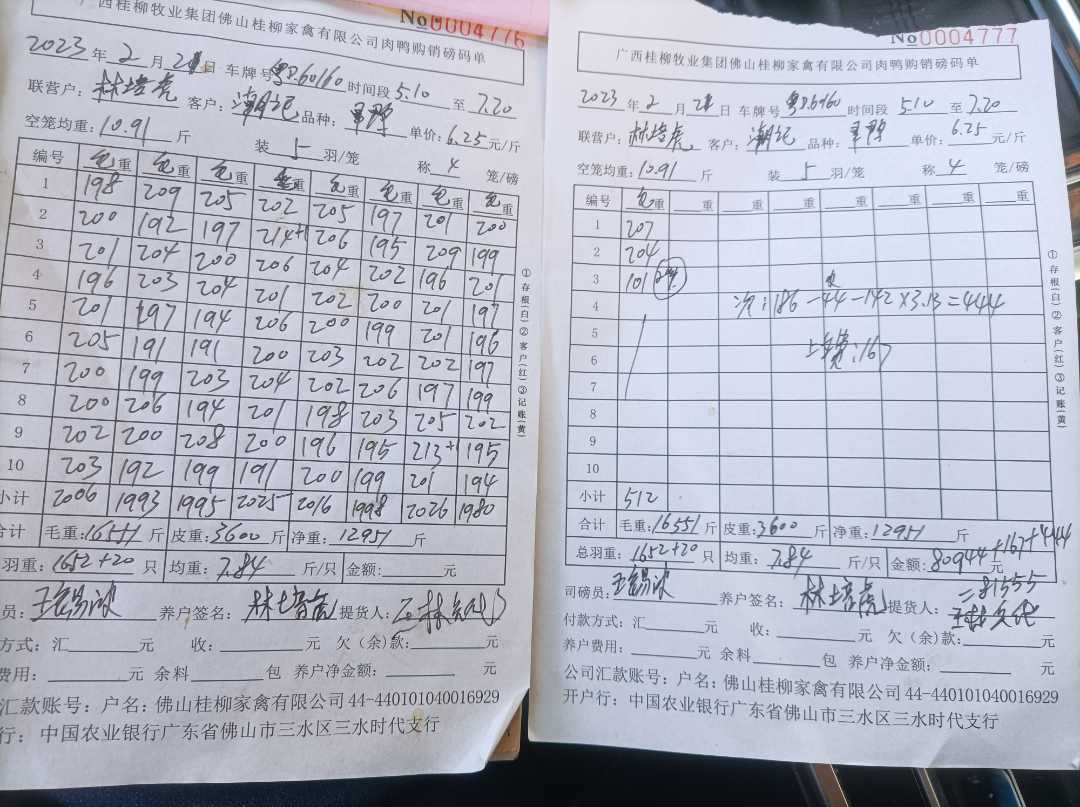 No 0004776
广西桂柳牧业集团佛山桂柳家禽有限公司肉鸭购销磅码单
2023 年 2 月 21 日 车牌号 粤 60160 时间段 5.10 至 7.20
联营户: 林培虎 客户: 潮记 品种: 单价: 6.25 元/斤
空笼均重: 10.91 斤 装 5 羽/笼 称 4 笼/磅
编号 毛重 毛重 毛重 毛重 毛重 毛重 毛重 毛重
1 198 209 205 202 205 197 201 200
2 200 192 197 214+1 206 195 209 199
3 201 204 200 206 204 202 196 201
4 196 203 204 201 202 200 201 197
5 201 197 194 206 200 199 201 196
6 205 191 191 200 203 202 202 197
7 200 199 203 204 202 206 197 199
8 200 206 194 201 198 203 205 202
9 202 200 208 200 196 195 213+1 195
10 203 192 199 191 200 199 201 194
小计 2006 1993 1995 2025 2016 1998 2026 1980
合计 毛重: 16551 斤 皮重: 3600 斤 净重: 12951 斤
羽重: 1652+20 只 均重: 7.84 斤/只 金额: 元
员: 王锡波 养户签名: 林培虎 提货人:
方式: 汇 元 收: 元 欠(余)款: 元
费用: 元 余料 包 养户净金额: 元
汇款账号: 户名: 佛山桂柳家禽有限公司 44-440101040016929
行: 中国农业银行广东省佛山市三水区三水时代支行
①存根(白)②客户(红)③记账(黄)
No 0004777
广西桂柳牧业集团佛山桂柳家禽有限公司肉鸭购销磅码单
2023 年 2 月 21 日 车牌号 粤 60160 时间段 5.10 至 7.20
联营户: 林培虎 客户: 潮记 品种: 单价: 6.25 元/斤
空笼均重: 10.91 斤 装 5 羽/笼 称 4 笼/磅
编号 毛重 重 重 重 重 重 重 重
1 207
2 204
3 101
4 次: 186-44-142×3.13=444
5
6 :167
7
8
9
10
小计 512
合计 毛重: 16551 斤 皮重: 3600 斤 净重: 12951 斤
总羽重: 1652+20 只 均重: 7.84 斤/只 金额: 80944+167+444 元
=81555
司磅员: 王锡波 养户签名: 林培虎 提货人:
付款方式: 汇 元 收: 元 欠(余)款: 元
养户费用: 元 余料 包 养户净金额: 元
公司汇款账号: 户名: 佛山桂柳家禽有限公司 44-440101040016929
开户行: 中国农业银行广东省佛山市三水区三水时代支行
①存根(白)②客户(红)③记账(黄)